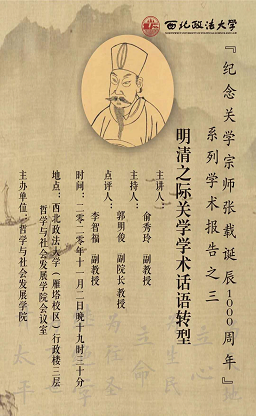 西北政法大学
『纪念关学宗师张载诞辰1000周年』
系列学术报告之三
明清之际关学学术话语转型
主讲人：俞秀玲 副教授
主持人：郭明俊 副院长教授
点评人：李智福 副教授
时间：二〇二〇年十一月二日晚十九时三十分
地点：西北政法大学（雁塔校区）行政楼三层
哲学与社会发展学院会议室
主办单位：哲学与社会发展学院